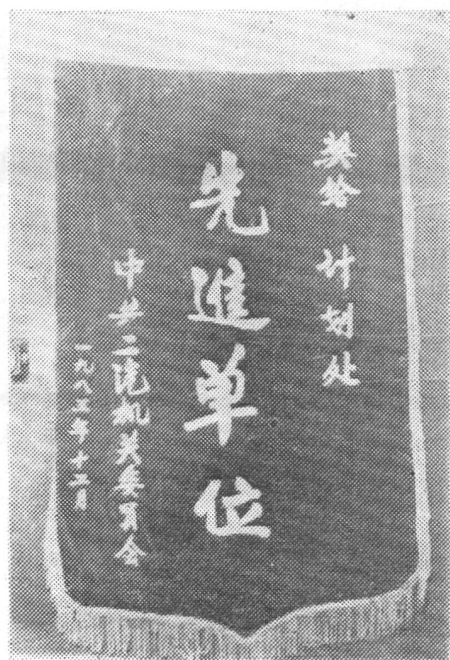 奖给 计划处
先進单位
中共二汽机关委员会
一九八三年十二月